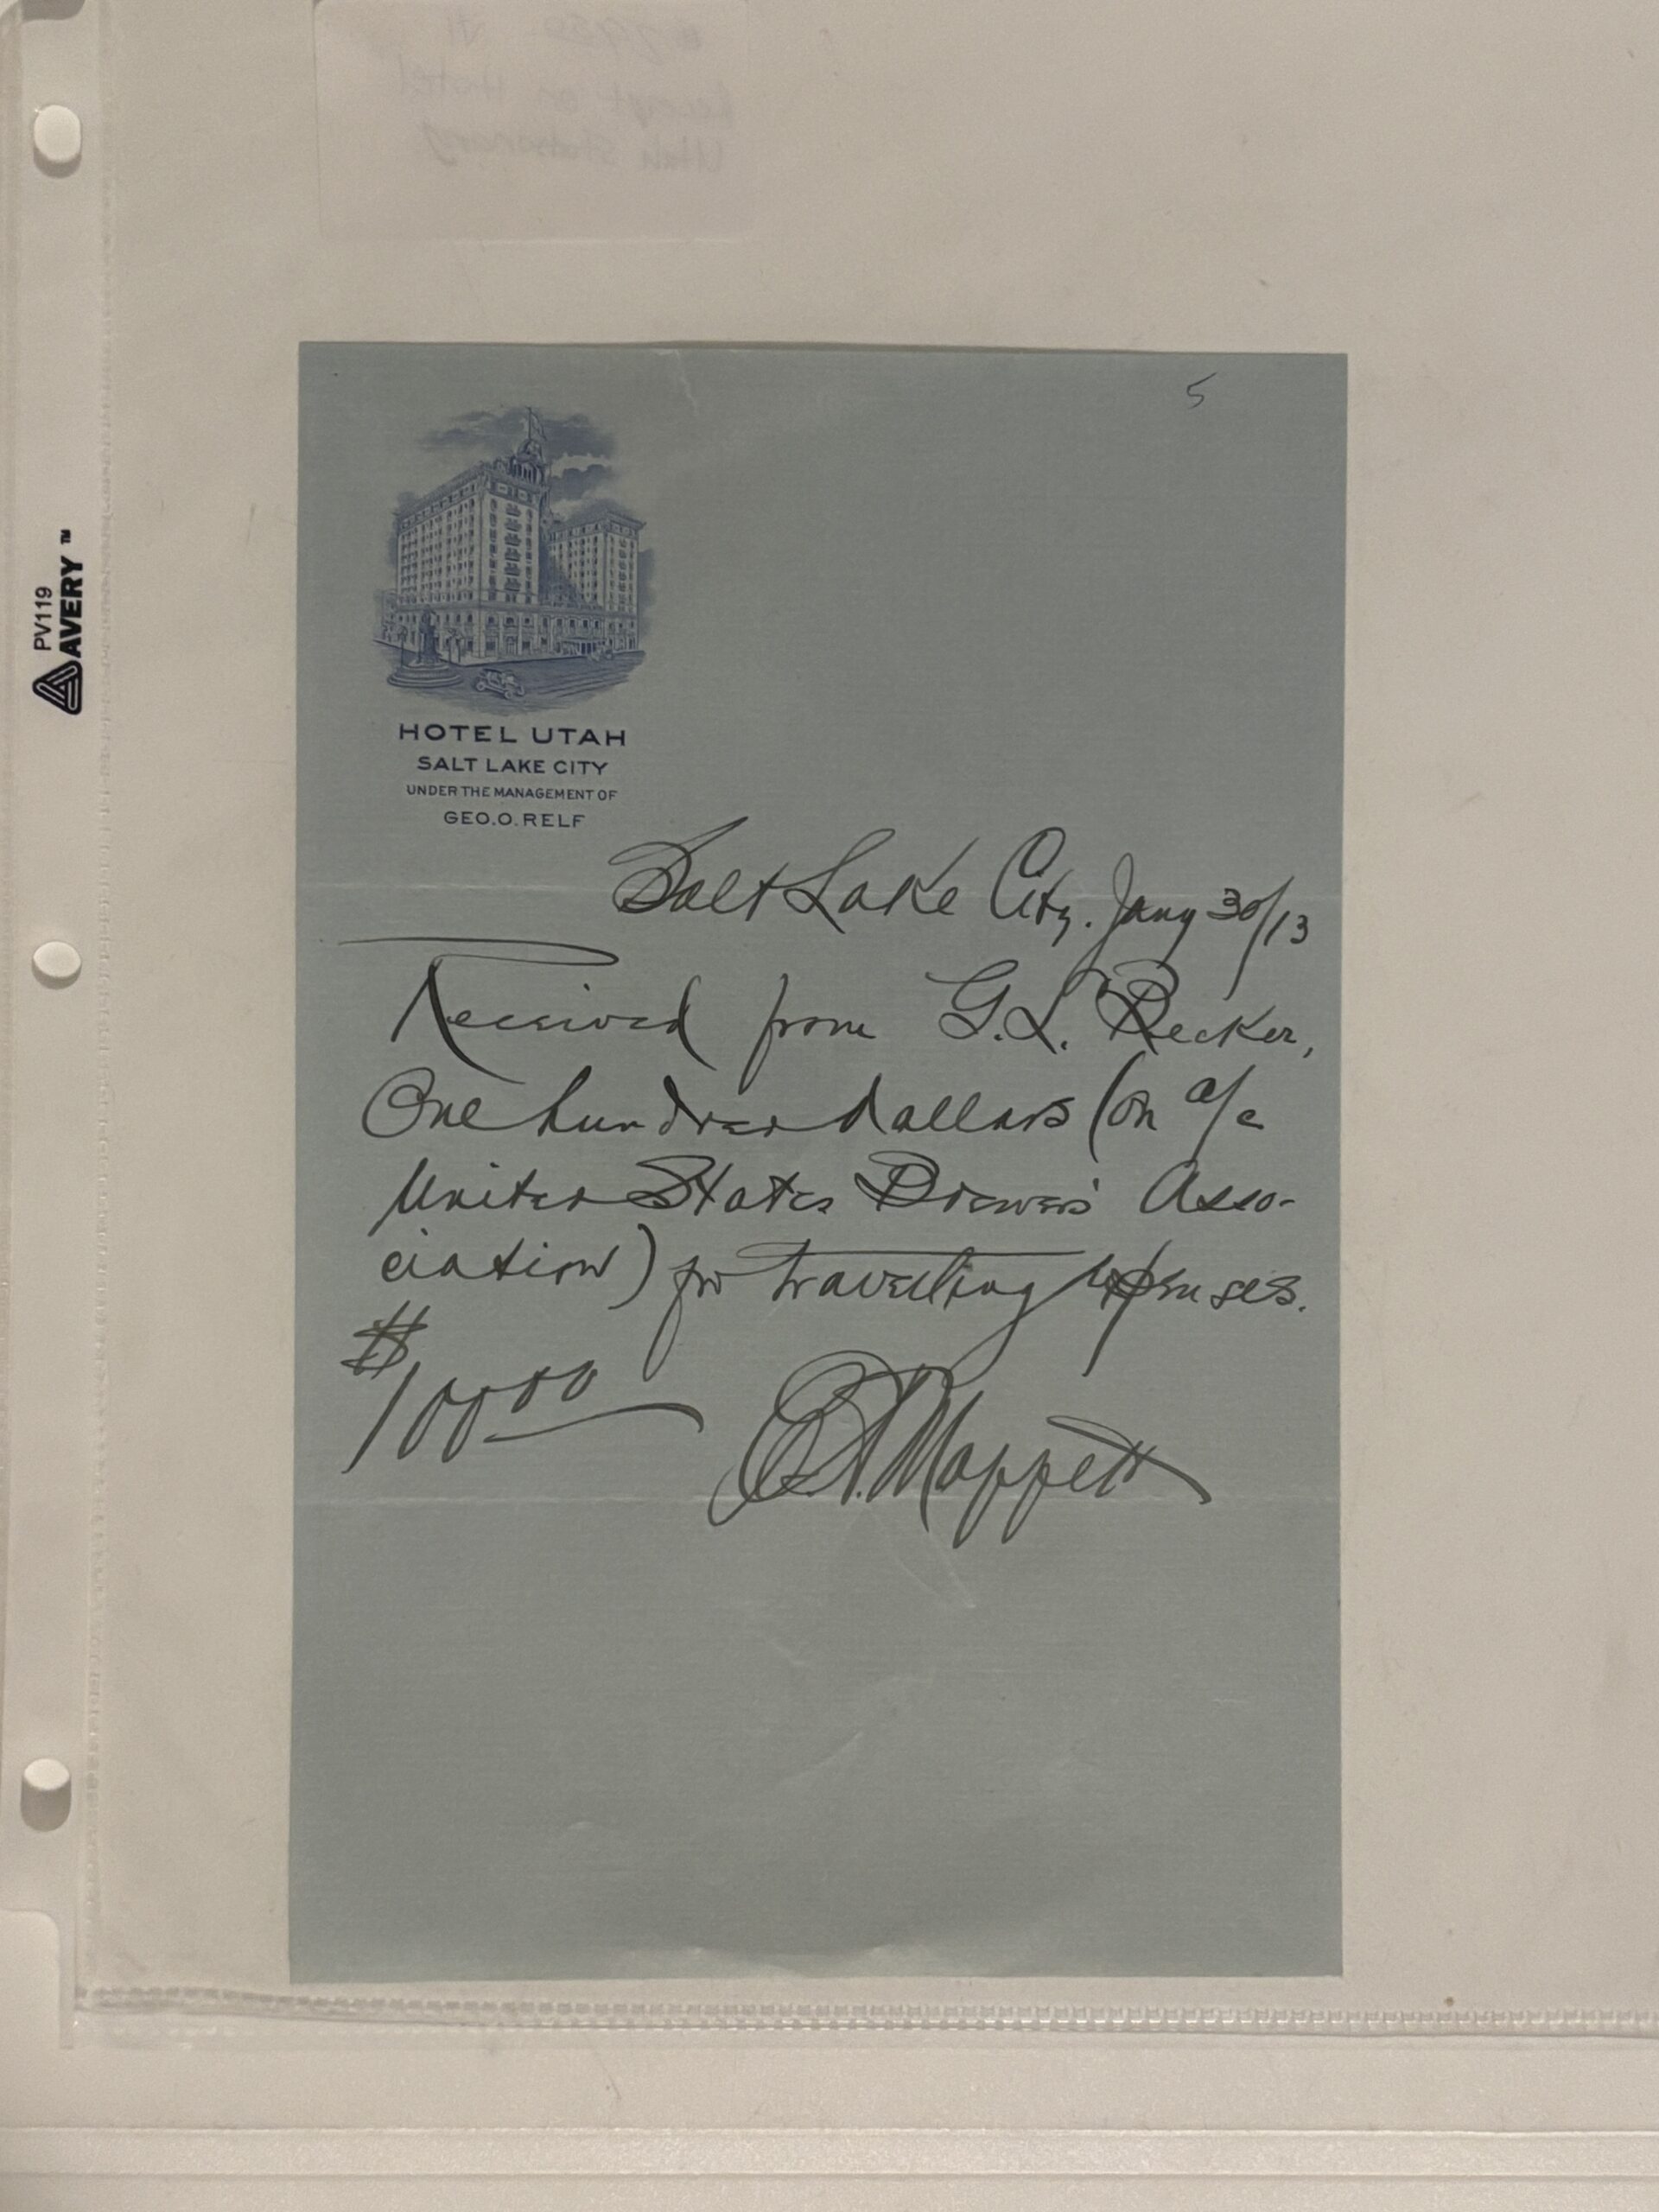 5
HOTEL UTAH
SALT LAKE CITY
UNDER THE MANAGEMENT OF
GEO. O. RELF
Salt Lake City. Jany 30/13
Received from G. L. Becker,
One hundred dollars (on a/c
United States Brewers' Asso-
ciation) for travelling expenses.
$100.00
Moppett
PV119
AVERY™
Receipt on Hotel
Utah Stationary